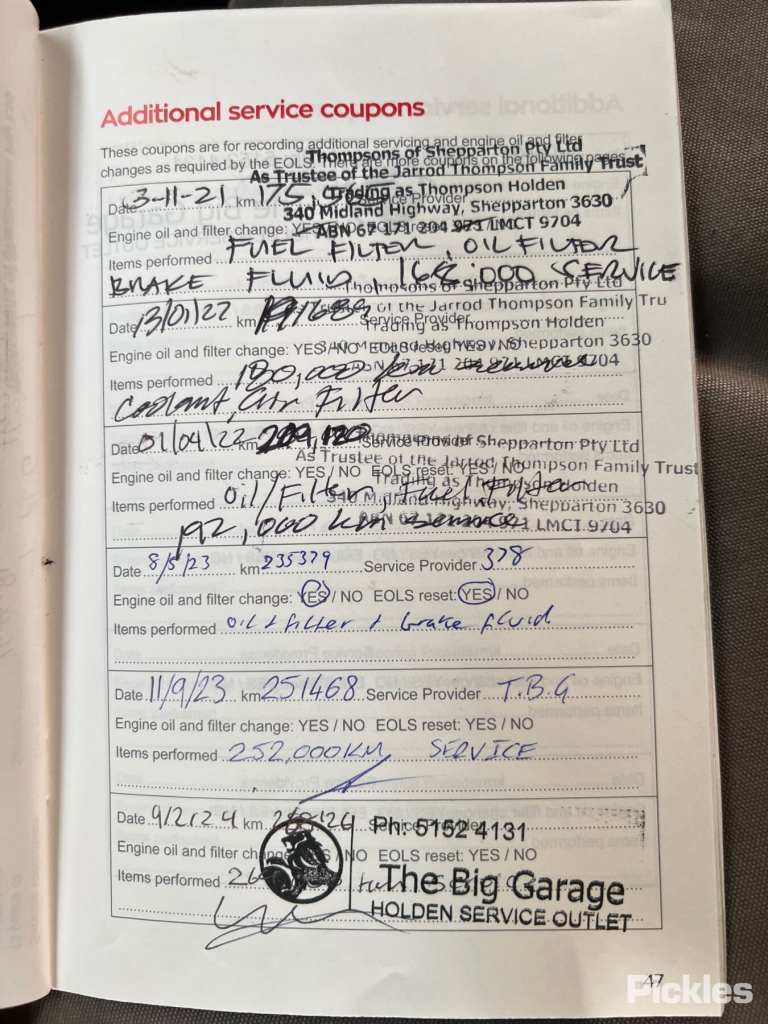 Additional service coupons
These coupons are for recording additional servicing and engine oil and filter
changes as required by the EOLS. There are more coupons on the following pages.
Thompsons of Shepparton Pty Ltd
As Trustee of the Jarrod Thompson Family Trust
Trading as Thompson Holden
340 Midland Highway, Shepparton 3630
ABN 67 171 204 973 LMCT 9704
Date 3-11-21 km 175, Service Provider
Engine oil and filter change: YES / NO
Items performed FUEL FILTER, OIL FILTER
BRAKE FLUID, 168,000 SERVICE
Thompsons of Shepparton Pty Ltd
of the Jarrod Thompson Family Tru
Trading as Thompson Holden
Highway, Shepparton 3630
9704
Date 13/01/22 km Service Provider
Engine oil and filter change: YES / NO EOLS reset: YES / NO
Items performed 180,000
Coolant, Air Filter
of Shepparton Pty Ltd
As Trustee of the Jarrod Thompson Family Trust
Trading as Holden
340 Midland Highway, Shepparton 3630
LMCT 9704
Date 01/04/22 km Service Provider
Engine oil and filter change: YES / NO EOLS reset: YES / NO
Items performed Oil/Filter, Fuel Filter
192,000 km service
Date 8/5/23 km 235379 Service Provider 378
Engine oil and filter change: YES / NO EOLS reset: YES / NO
Items performed oil + filter + brake fluid
Date 11/9/23 km 251468 Service Provider T.B.G
Engine oil and filter change: YES / NO EOLS reset: YES / NO
Items performed 252,000KM SERVICE
Date 9/2/24 km Service Provider
Engine oil and filter change: YES / NO EOLS reset: YES / NO
Items performed
Ph: 5152 4131
The Big Garage
HOLDEN SERVICE OUTLET
47
Pickles